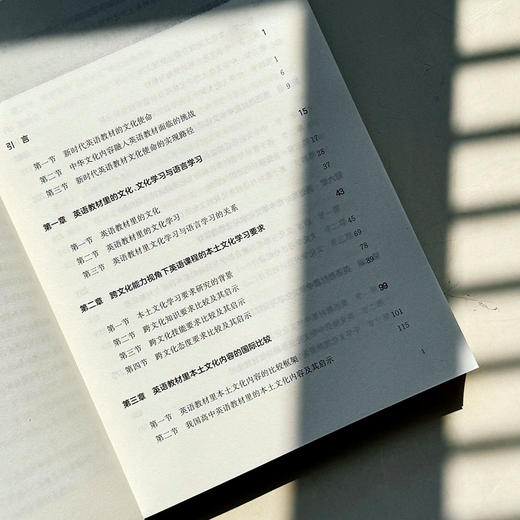 引 言 1
第一节 新时代英语教材的文化使命 1
第二节 中华文化内容融入英语教材面临的挑战 6
第三节 新时代英语教材文化使命的实现路径 9
第一章 英语教材里的文化、文化学习与语言学习 15
第一节 英语教材里的文化 17
第二节 英语教材里的文化学习 28
第三节 英语教材里文化学习与语言学习的关系 37
第二章 跨文化能力视角下英语课程的本土文化学习要求 43
第一节 本土文化学习要求研究的背景 45
第二节 跨文化知识要求比较及其启示
第三节 跨文化技能要求比较及其启示 78
第四节 跨文化态度要求比较及其启示 89
第三章 英语教材里本土文化内容的国际比较 99
第一节 英语教材里本土文化内容的比较框架 101
第二节 我国高中英语教材里的本土文化内容及其启示 115
I